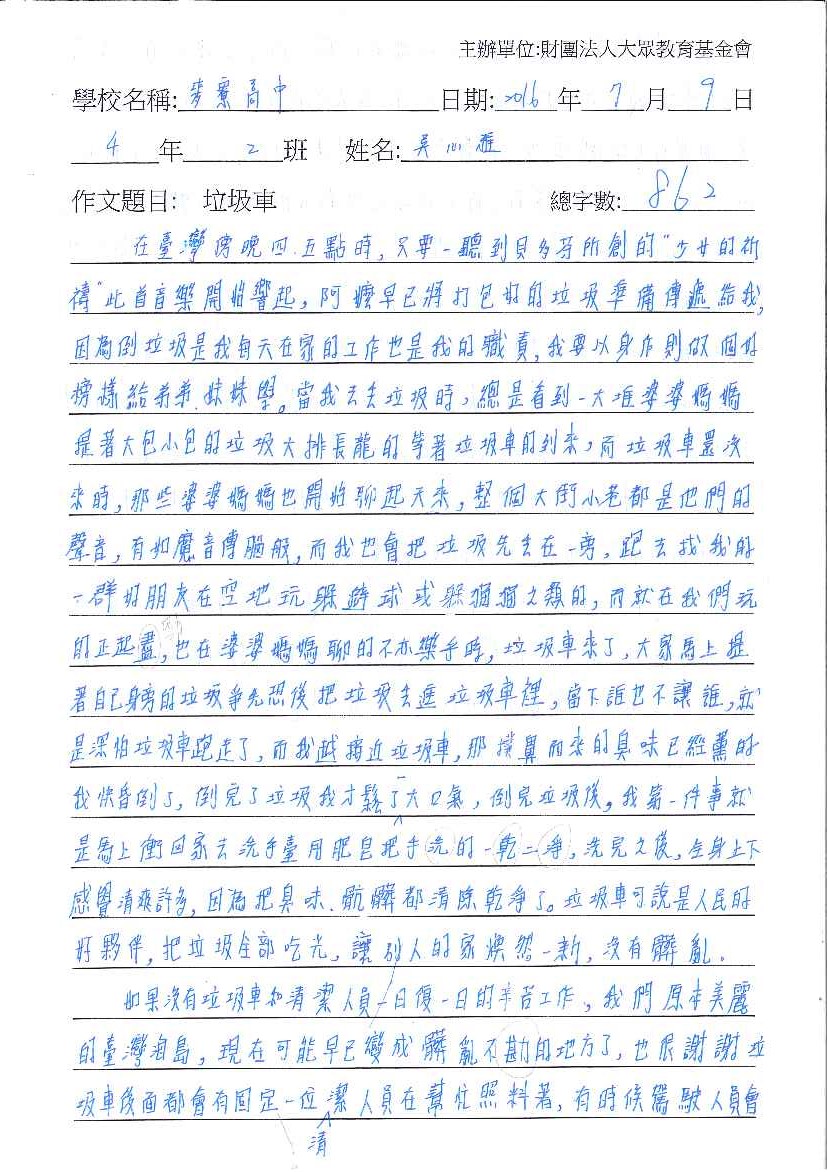 主辦單位:財團法人大眾教育基金會
學校名稱: 麥寮高中 日期: 2016 年 7 月 9 日
4 年 2 班 姓名: 吳心雅
作文題目: 垃圾車 總字數: 862
在臺灣傍晚四.五點時,只要一聽到貝多芬所創的"少女的祈
禱"此首音樂開始響起,阿嬤早已將打包好的垃圾準備傳遞給我,
因為倒垃圾是我每天在家的工作也是我的職責,我要以身作則做個好
榜樣給弟弟.妹妹學。當我去丟垃圾時,總是看到一大堆婆婆媽媽
提著大包小包的垃圾大排長龍的等著垃圾車的到來,而垃圾車還沒
來時,那些婆婆媽媽也開始聊起天來,整個大街小巷都是他們的
聲音,有如魔音傳腦般,而我也會把垃圾先丟在一旁,跑去找我的
一群好朋友在空地玩躲避球或躲貓貓之類的,而就在我們玩
的正起盡,也在婆婆媽媽聊的不亦樂乎時,垃圾車來了,大家馬上提
著自己身旁的垃圾爭先恐後把垃圾丟進垃圾車裡,當下誰也不讓誰,就
是深怕垃圾車跑走了,而我越接近垃圾車,那撲鼻而來的臭味已經薰的
我快昏倒了,倒完了垃圾我才鬆了一大口氣,倒完垃圾後,我第一件事就
是馬上衝回家去洗手臺用肥皂把手洗的一乾二淨,洗完之後,全身上下
感覺清爽許多,因為把臭味.骯髒都清除乾淨了。垃圾車可說是人民的
好夥伴,把垃圾全部吃光,讓別人的家煥然一新,沒有髒亂.
如果沒有垃圾車和清潔人員一日復一日的辛苦工作,我們原本美麗
的臺灣海島,現在可能早已變成髒亂不勘的地方了,也很謝謝垃
圾車後面都會有固定一位清潔人員在幫忙照料著,有時候駕駛人員會